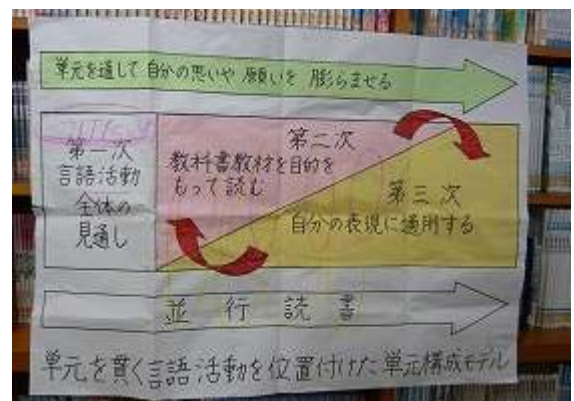 単元を通して自分の思いや願いを膨らませる
第一次
言語活動
全体の
見通し
第二次
教科書教材を目的を
もって読む
第三次
自分の表現に適用する
並行読書
単元を貫く言語活動を位置付けた単元構成モデル